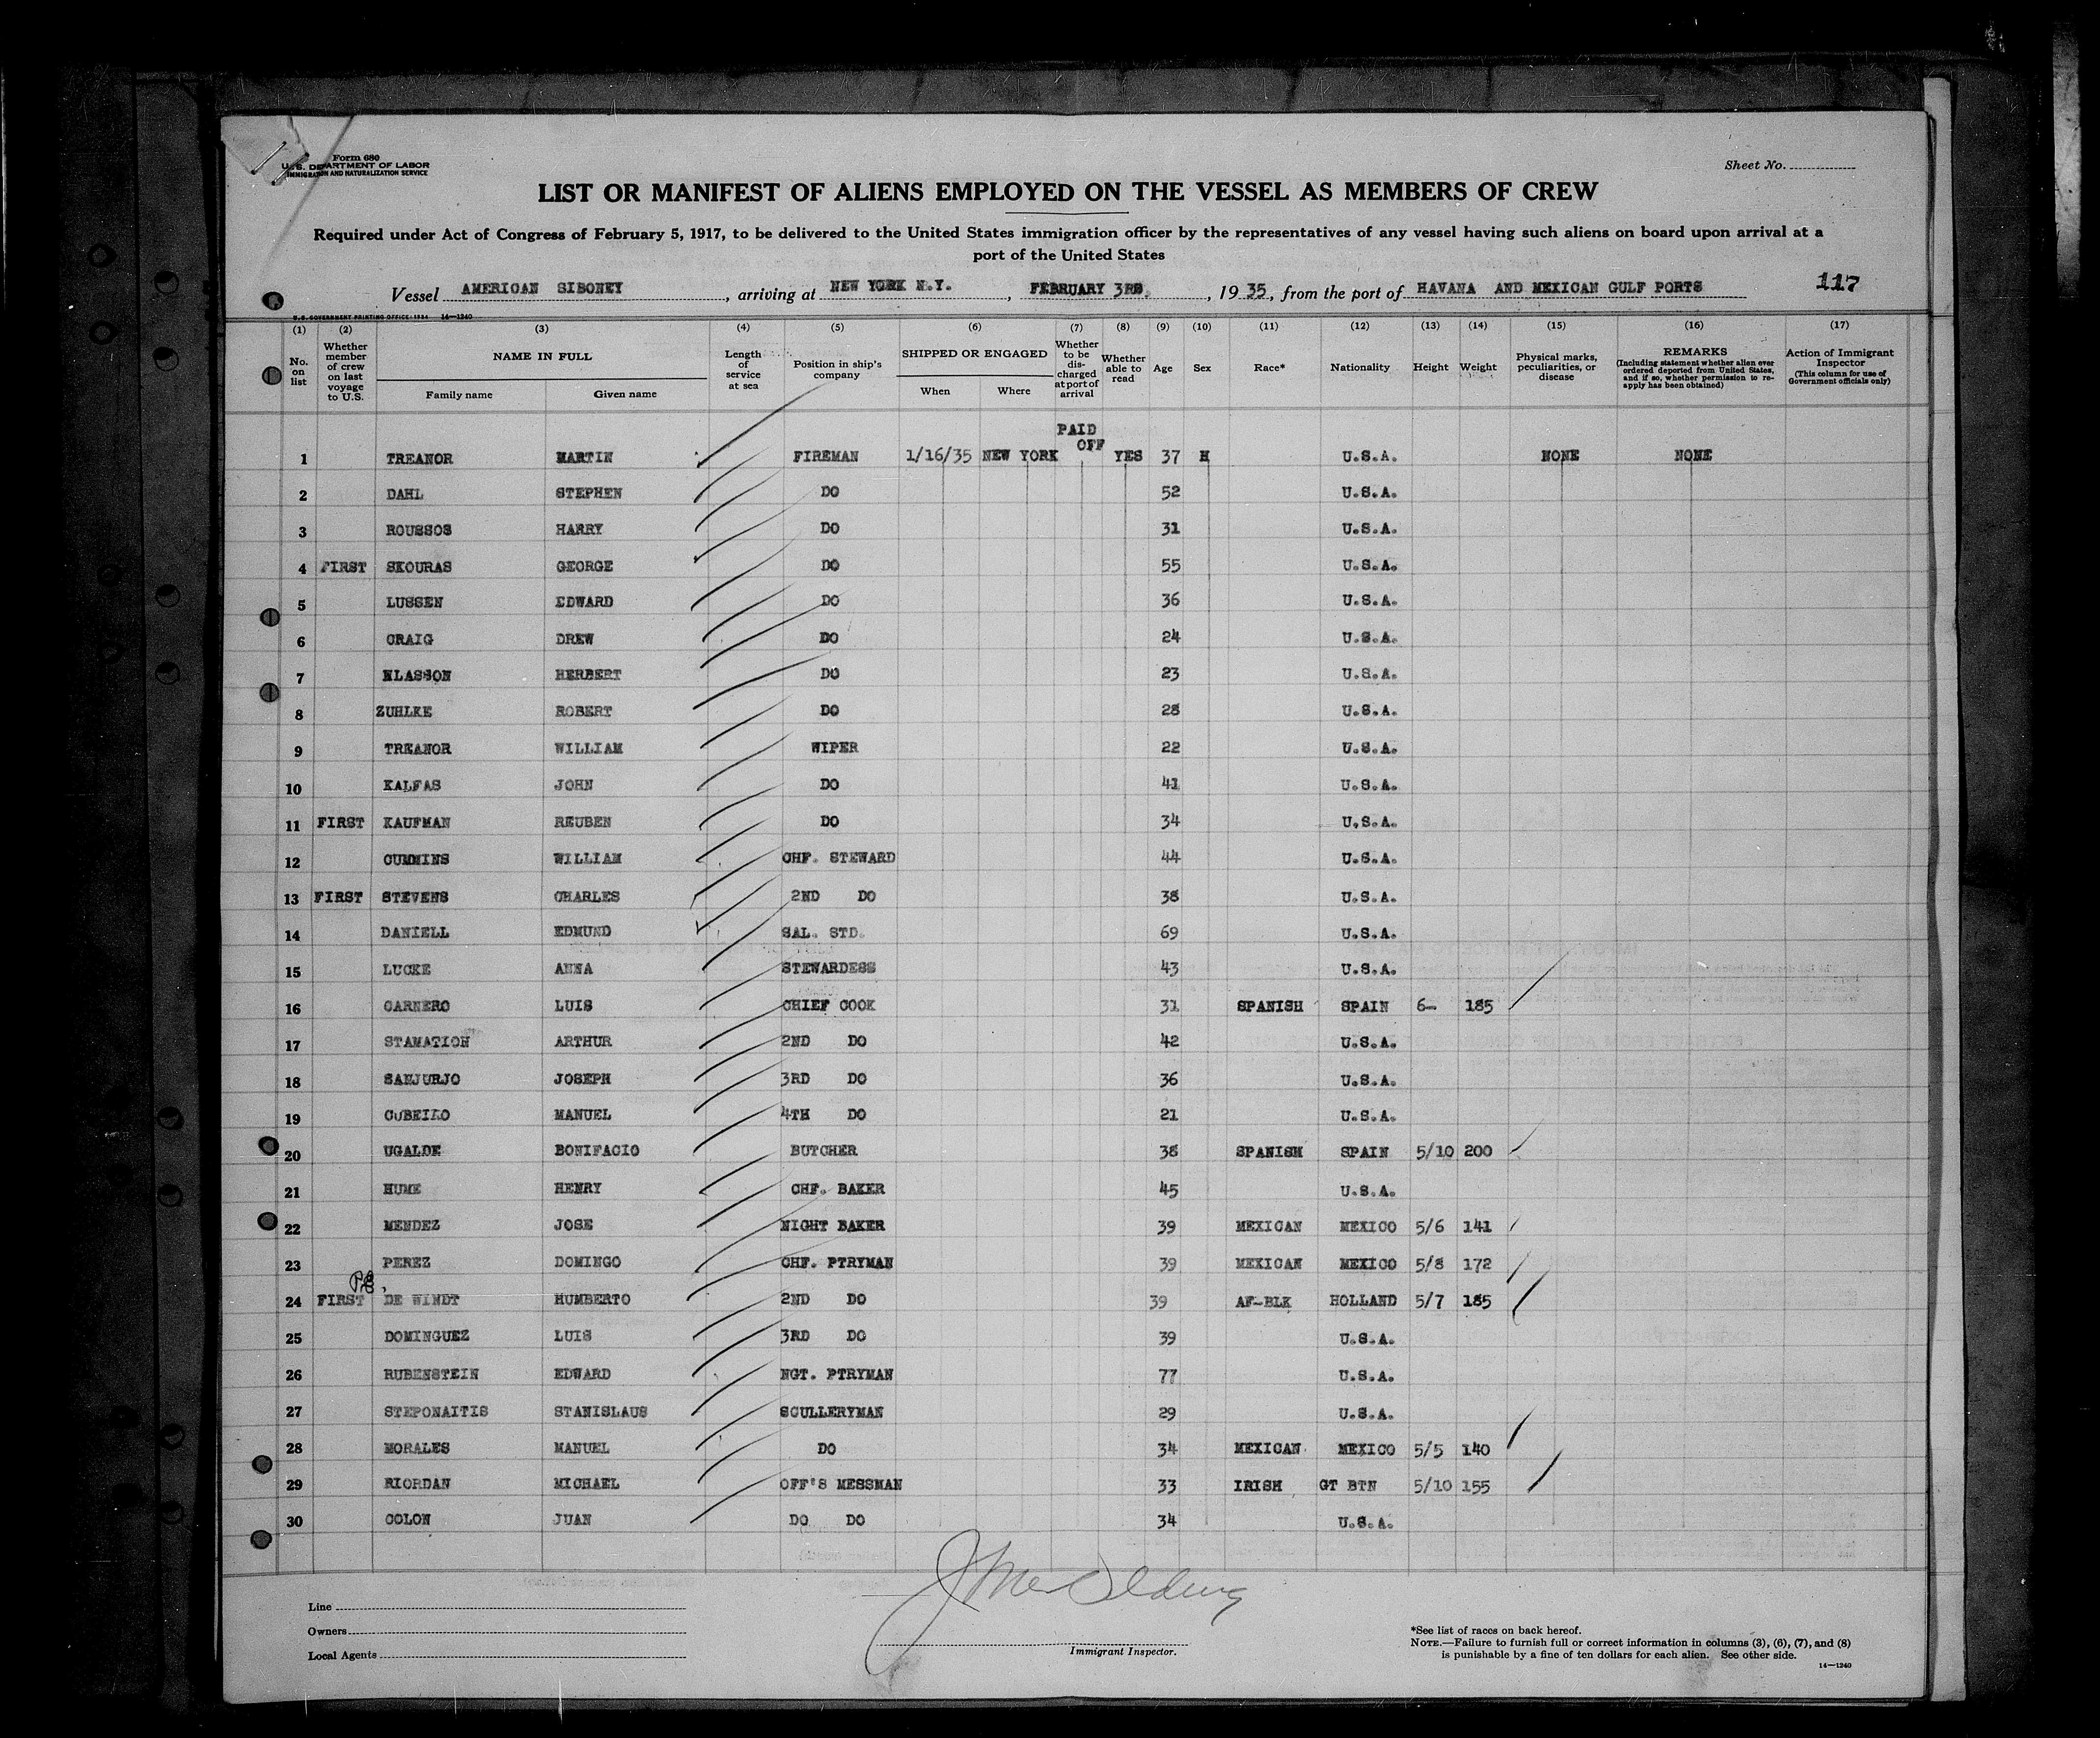 Form 680
U. S. DEPARTMENT OF LABOR
IMMIGRATION AND NATURALIZATION SERVICE
Sheet No.
LIST OR MANIFEST OF ALIENS EMPLOYED ON THE VESSEL AS MEMBERS OF CREW
Required under Act of Congress of February 5, 1917, to be delivered to the United States immigration officer by the representatives of any vessel having such aliens on board upon arrival at a
port of the United States
Vessel AMERICAN SIBONEY, arriving at NEW YORK N.Y., FEBRUARY 3RD, 1935, from the port of HAVANA AND MEXICAN GULF PORTS 117
U.S. GOVERNMENT PRINTING OFFICE: 1934 14—1240
(1) (2) (3) (4) (5) (6) (7) (8) (9) (10) (11) (12) (13) (14) (15) (16) (17)
No. on list
Whether member of crew on last voyage to U.S.
NAME IN FULL
Family name
Given name
Length of service at sea
Position in ship's company
SHIPPED OR ENGAGED
When
Where
Whether to be discharged at port of arrival
Whether able to read
Age
Sex
Race*
Nationality
Height
Weight
Physical marks, peculiarities, or disease
REMARKS
(Including statement whether alien ever ordered deported from United States, and if so, whether permission to reapply has been obtained)
Action of Immigrant Inspector
(This column for use of Government officials only)
PAID
OFF
1 TREANOR MARTIN FIREMAN 1/16/35 NEW YORK YES 37 M U.S.A. NONE NONE
2 DAHL STEPHEN DO 52 U.S.A.
3 ROUSSOS HARRY DO 31 U.S.A.
4 FIRST SKOURAS GEORGE DO 55 U.S.A.
5 LUSSEN EDWARD DO 36 U.S.A.
6 CRAIG DREW DO 24 U.S.A.
7 KLASSON HERBERT DO 23 U.S.A.
8 ZUHLKE ROBERT DO 28 U.S.A.
9 TREANOR WILLIAM WIPER 22 U.S.A.
10 KALFAS JOHN DO 41 U.S.A.
11 FIRST KAUFMAN REUBEN DO 34 U.S.A.
12 CUMMINS WILLIAM CHF. STEWARD 44 U.S.A.
13 FIRST STEVENS CHARLES 2ND DO 38 U.S.A.
14 DANIELL EDMUND SAL. STD. 69 U.S.A.
15 LUCKE ANNA STEWARDESS 43 U.S.A.
16 CARNERO LUIS CHIEF COOK 31 SPANISH SPAIN 6— 185
17 STAMATION ARTHUR 2ND DO 42 U.S.A.
18 SANJURJO JOSEPH 3RD DO 36 U.S.A.
19 CUBEILO MANUEL 4TH DO 21 U.S.A.
20 UGALDE BONIFACIO BUTCHER 38 SPANISH SPAIN 5/10 200
21 HUME HENRY CHF. BAKER 45 U.S.A.
22 MENDEZ JOSE NIGHT BAKER 39 MEXICAN MEXICO 5/6 141
23 PEREZ DOMINGO CHF. PTRYMAN 39 MEXICAN MEXICO 5/8 172
24 FIRST DE WINDT HUMBERTO 2ND DO 39 AF-BLK HOLLAND 5/7 185
25 DOMINGUEZ LUIS 3RD DO 39 U.S.A.
26 RUBENSTEIN EDWARD NGT. PTRYMAN 77 U.S.A.
27 STEPONAITIS STANISLAUS SCULLERYMAN 29 U.S.A.
28 MORALES MANUEL DO 34 MEXICAN MEXICO 5/5 140
29 RIORDAN MICHAEL OFF'S MESSMAN 33 IRISH GT BTN 5/10 155
30 COLON JUAN DO DO 34 U.S.A.
Line
Owners
Local Agents
Immigrant Inspector.
*See list of races on back hereof.
NOTE.—Failure to furnish full or correct information in columns (3), (6), (7), and (8)
is punishable by a fine of ten dollars for each alien. See other side.
14—1240